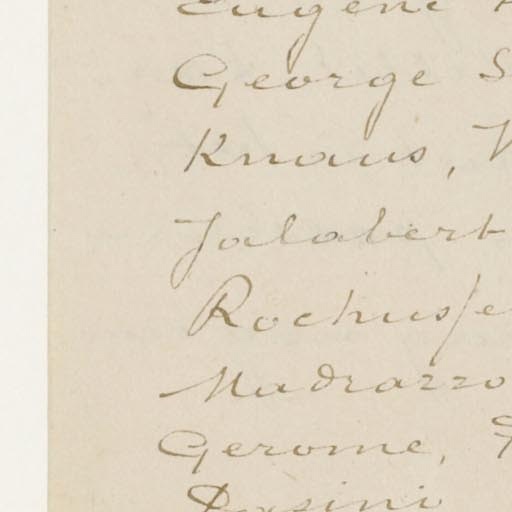 Eugene
George
Knaus,
Jalabert
Rochusse
Madrazzo
Gerome,
Pasini